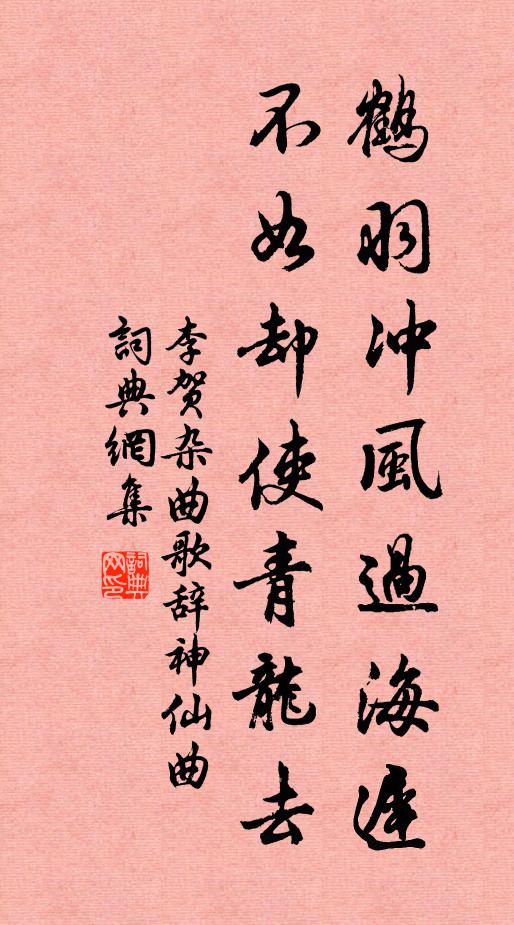 鶴羽冲風過海遲
不如却使青龍去
李贺杂曲歌辞神仙曲
詞典網集
詞典网印